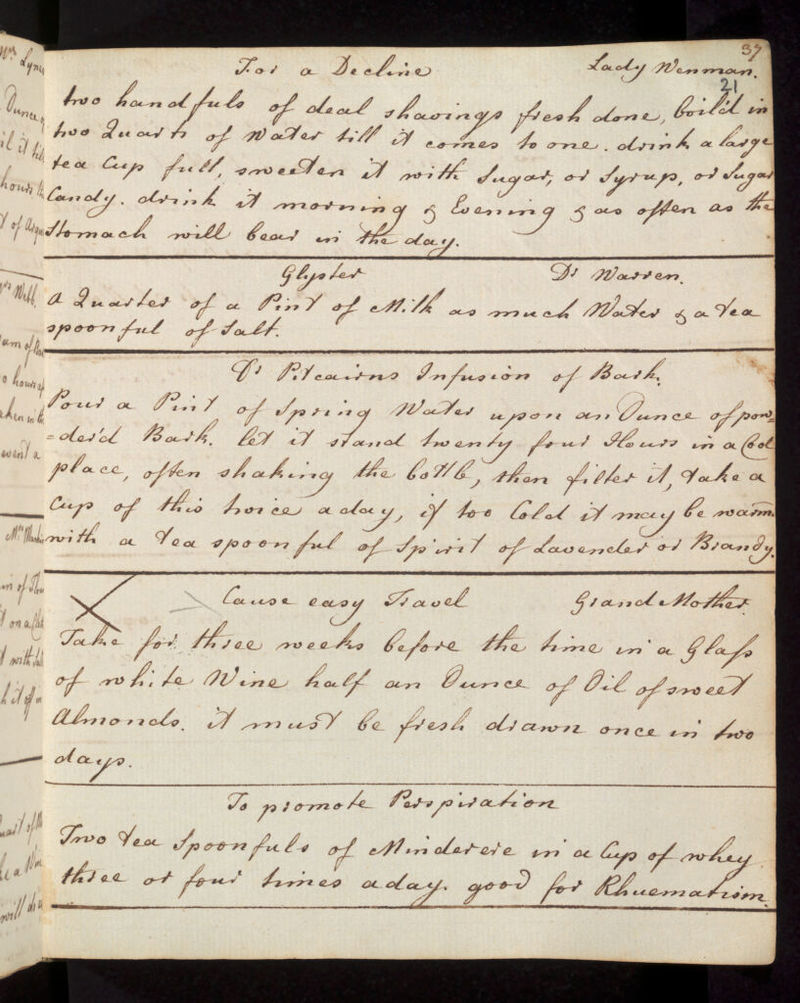 37
For a Decline Lady Wenman.
21
two handfuls of deal shavings fresh done, boil'd in
two Quarts of Water till it comes to one. drink a large
tea Cup full, sweeten it with Sugar, or Syrup, or Sugar
Candy. drink it morning & Evening & as often as the
Stomach will bear in the day.
Glyster Dr Warren.
A Quarter of a Pint of Milk as much Water & a tea
spoonful of Salt.
Dr Pitcairns Infusion of Bark.
Pour a Pint of Spring Water upon an Ounce of pow=
=der'd Bark. let it stand twenty four Hours in a Cool
place, often shaking the bottle, then filter it, take a
Cup of this twice a day, if too Cold it may be warm
with a tea spoonful of Spirit of Lavender or Brandy.
Cause easy Travel Grand Mother.
Take for three weeks before the time in a Glass
of white Wine half an Ounce of Oil of sweet
Almonds. it must be fresh drawn once in two
days.
To promote Perspiration
Two tea Spoonfuls of Minderere in a Cup of whey
three or four times a day. good for Rhuematism.